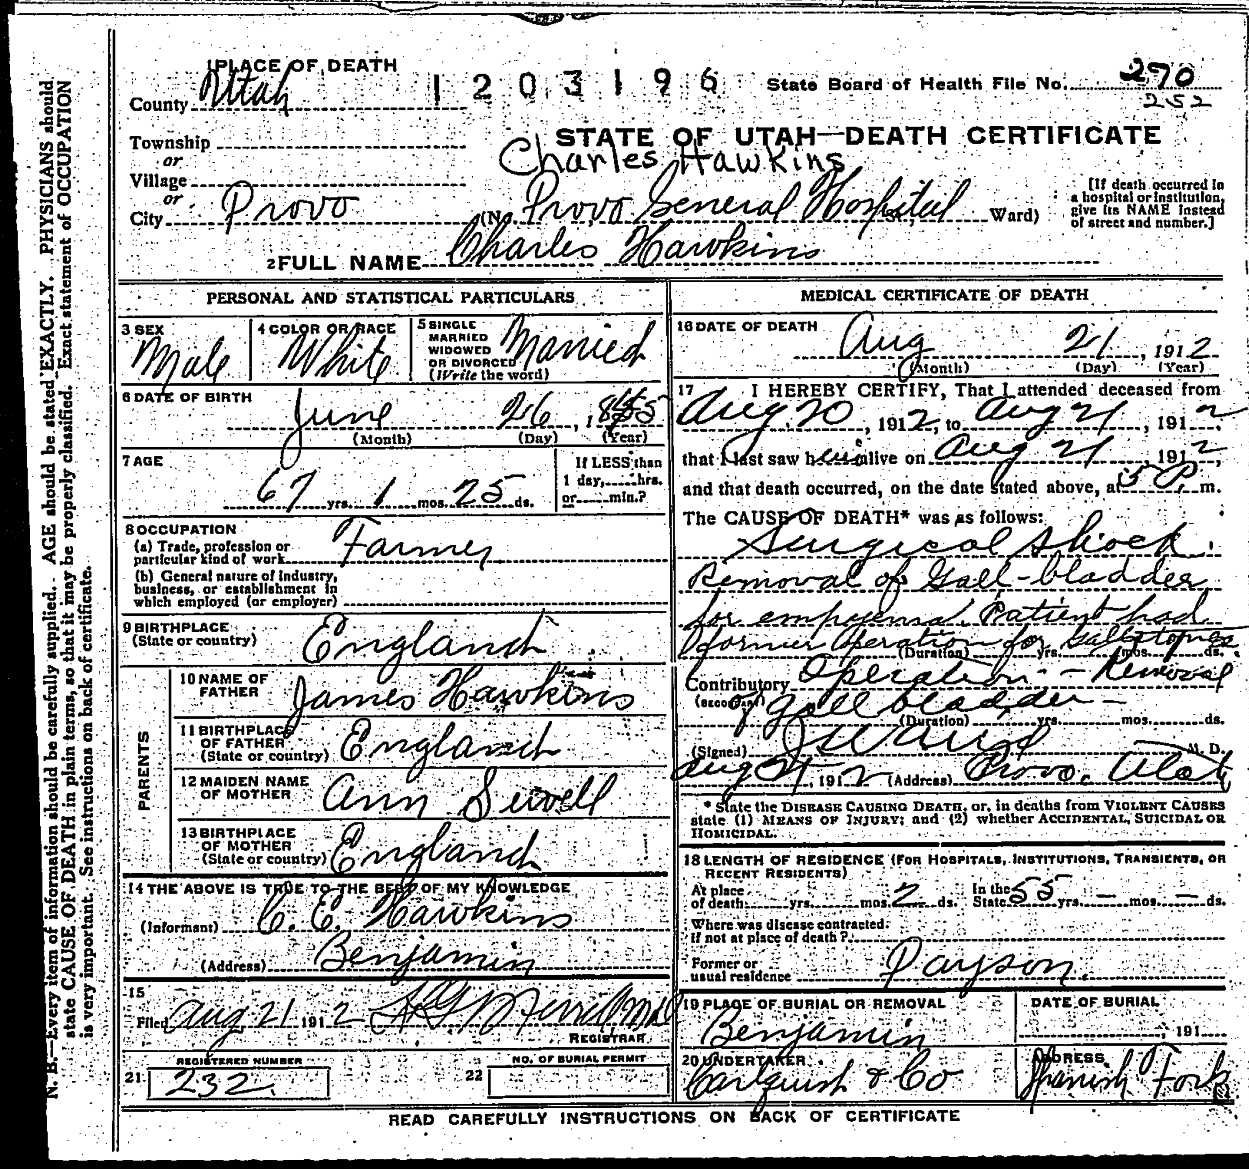 1 PLACE OF DEATH
County Utah
1203196
State Board of Health File No. 270
252
Township
or
Village
or
City Provo
STATE OF UTAH—DEATH CERTIFICATE
Charles Hawkins
(No. Provo General Hospital St., Ward)
[If death occurred in
a hospital or institution,
give its NAME instead
of street and number.]
2 FULL NAME Charles Hawkins
PERSONAL AND STATISTICAL PARTICULARS
3 SEX
Male
4 COLOR OR RACE
White
5 SINGLE
MARRIED
WIDOWED
OR DIVORCED
(Write the word)
Married
6 DATE OF BIRTH
June 26, 1845
(Month) (Day) (Year)
7 AGE
67 yrs. 1 mos. 25 ds.
If LESS than
1 day, hrs.
or min.?
8 OCCUPATION
(a) Trade, profession or
particular kind of work Farmer
(b) General nature of industry,
business, or establishment in
which employed (or employer)
9 BIRTHPLACE
(State or country) England
PARENTS
10 NAME OF
FATHER James Hawkins
11 BIRTHPLACE
OF FATHER
(State or country) England
12 MAIDEN NAME
OF MOTHER Ann Sewell
13 BIRTHPLACE
OF MOTHER
(State or country) England
14 THE ABOVE IS TRUE TO THE BEST OF MY KNOWLEDGE
(Informant) C. E. Hawkins
(Address) Benjamin
15
Filed Aug 21 1912
REGISTRAR
REGISTERED NUMBER
21 232.
NO. OF BURIAL PERMIT
22
MEDICAL CERTIFICATE OF DEATH
16 DATE OF DEATH
Aug 21, 1912
(Month) (Day) (Year)
17 I HEREBY CERTIFY, That I attended deceased from
Aug. 20, 1912, to Aug 21, 1912,
that I last saw him alive on Aug 21, 1912,
and that death occurred, on the date stated above, at 5 P. m.
The CAUSE OF DEATH* was as follows:
Surgical shock.
Removal of Gall-bladder
for empyema. Patient had
former Operation for Gallstones
(Duration) yrs. mos. ds.
Contributory Operation - Removal
(SECONDARY) of gall bladder -
(Duration) yrs. mos. ds.
(Signed) M. D.
Aug 21, 1912 (Address) Provo, Utah
* State the DISEASE CAUSING DEATH, or, in deaths from VIOLENT CAUSES
state (1) MEANS OF INJURY; and (2) whether ACCIDENTAL, SUICIDAL OR
HOMICIDAL.
18 LENGTH OF RESIDENCE (FOR HOSPITALS, INSTITUTIONS, TRANSIENTS, OR
RECENT RESIDENTS)
At place
of death yrs. mos. 2 ds. In the
State 55 yrs. - mos. - ds.
Where was disease contracted.
If not at place of death?
Former or
usual residence Payson.
19 PLACE OF BURIAL OR REMOVAL
Benjamin
DATE OF BURIAL
, 191
20 UNDERTAKER
Carlquist & Co
ADDRESS
Spanish Fork
READ CAREFULLY INSTRUCTIONS ON BACK OF CERTIFICATE
N. B.—Every item of information should be carefully supplied. AGE should be stated EXACTLY. PHYSICIANS should
state CAUSE OF DEATH in plain terms, so that it may be properly classified. Exact statement of OCCUPATION
is very important. See instructions on back of certificate.